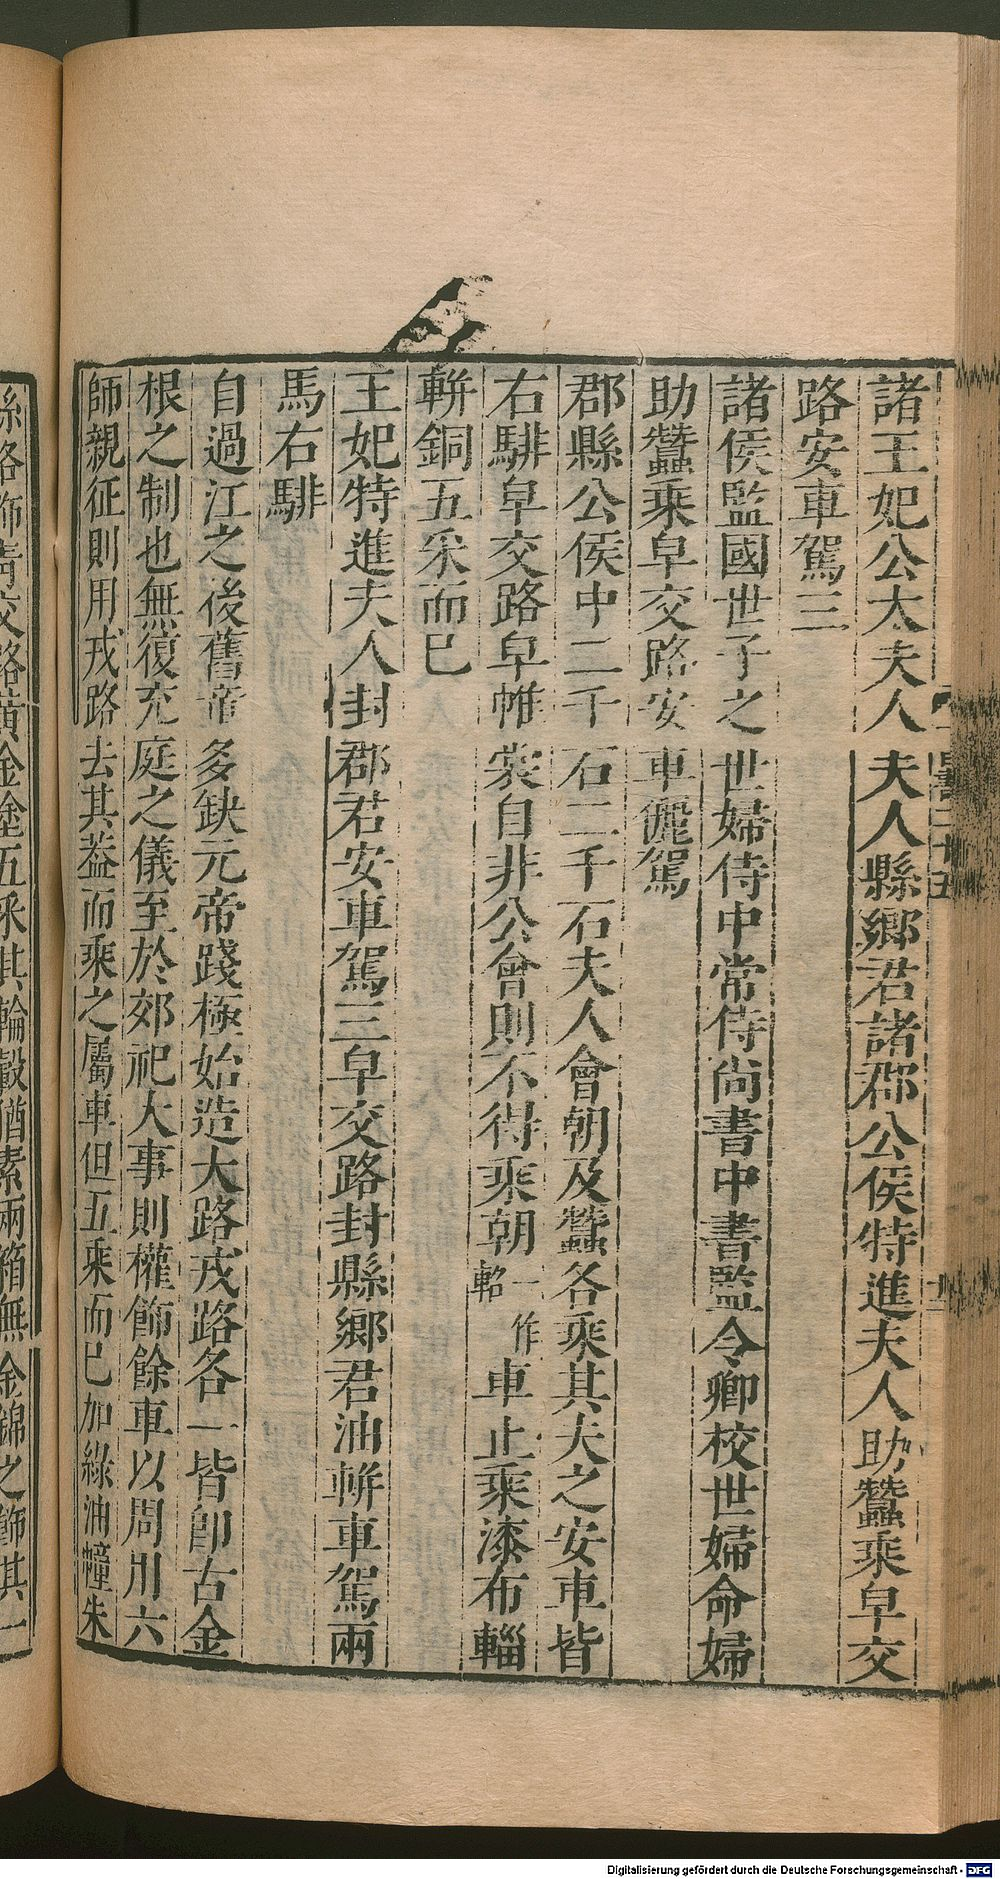 諸王妃公太夫人夫人縣鄉君諸郡公侯特進夫人助蠶乘皁交
路安車駕三
諸侯監國世子之世婦侍中常侍尚書中書監令卿校世婦命婦
助蠶乘皁交路安車儷駕
郡縣公侯中二千石二千石夫人會朝及蠶各乘其夫之安車皆
右騑皁交路皁帷裳自非公會則不得乘朝一作軺車止乘漆布輜
軿銅五采而已
王妃特進夫人封郡君安車駕三皁交路封縣鄉君油軿車駕兩
馬右騑
自過江之後舊章多缺元帝踐極始造大路戎路各一皆卽古金
根之制也無復充庭之儀至於郊祀大事則權飾餘車以周用六
師親征則用戎路去其葢而乘之屬車但五乘而已加綠油幢朱
絲絡飾青交路黃金塗五采其輪轂猶素兩箱無金錦之飾其一
Digitalisierung gefördert durch die Deutsche Forschungsgemeinschaft - DFG